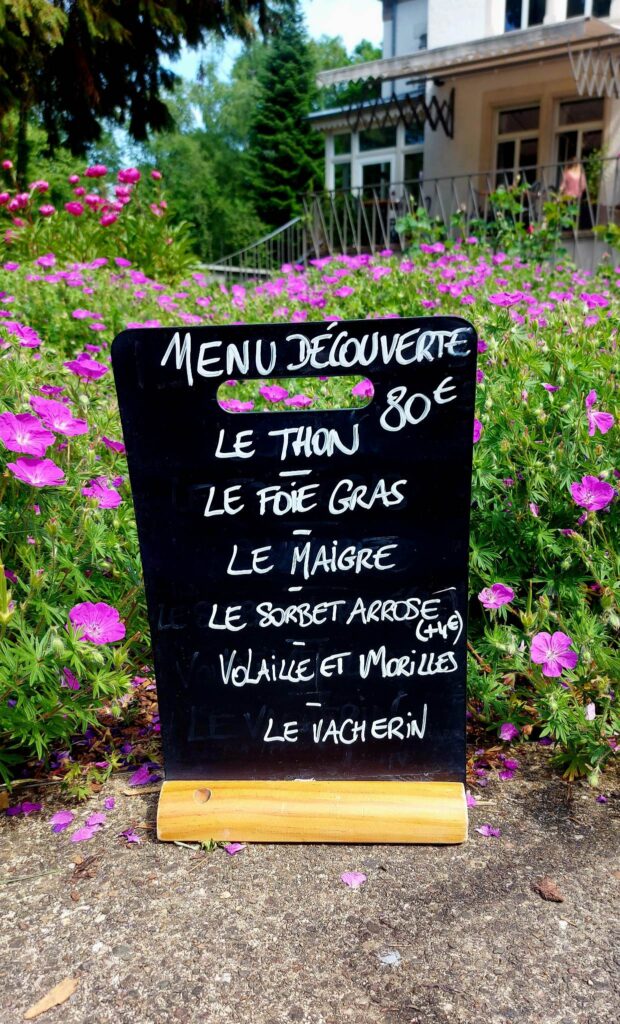 MENU DÉCOUVERTE
80€
LE THON
–
LE FOIE GRAS
–
LE MAIGRE
–
LE SORBET ARROSE
(+4€)
–
VOLAILLE ET MORILLES
–
LE VACHERIN